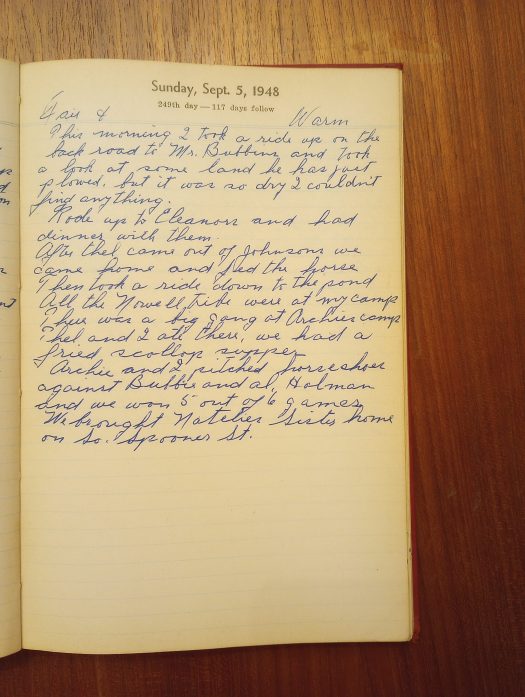 Sunday, Sept. 5, 1948
249th day — 117 days follow
Fair & Warm
This morning I took a ride up on the
back road to Mr. Bubbins and took
a look at some land he has just
plowed, but it was so dry I couldn't
find anything.
Rode up to Eleanors and had
dinner with them.
After thel came out of Johnsons we
came home and fed the horse
Then took a ride down to the pond
All the Nowell tribe were at my camp
There was a big gang at Archies camp
Thel and I ate there, we had a
fried scollop supper
Archie and I pitched horseshoes
against Bubbie and al, Holman
and we won 5 out of 6 games
We brought Natches Sister home
on So. Spooner St.